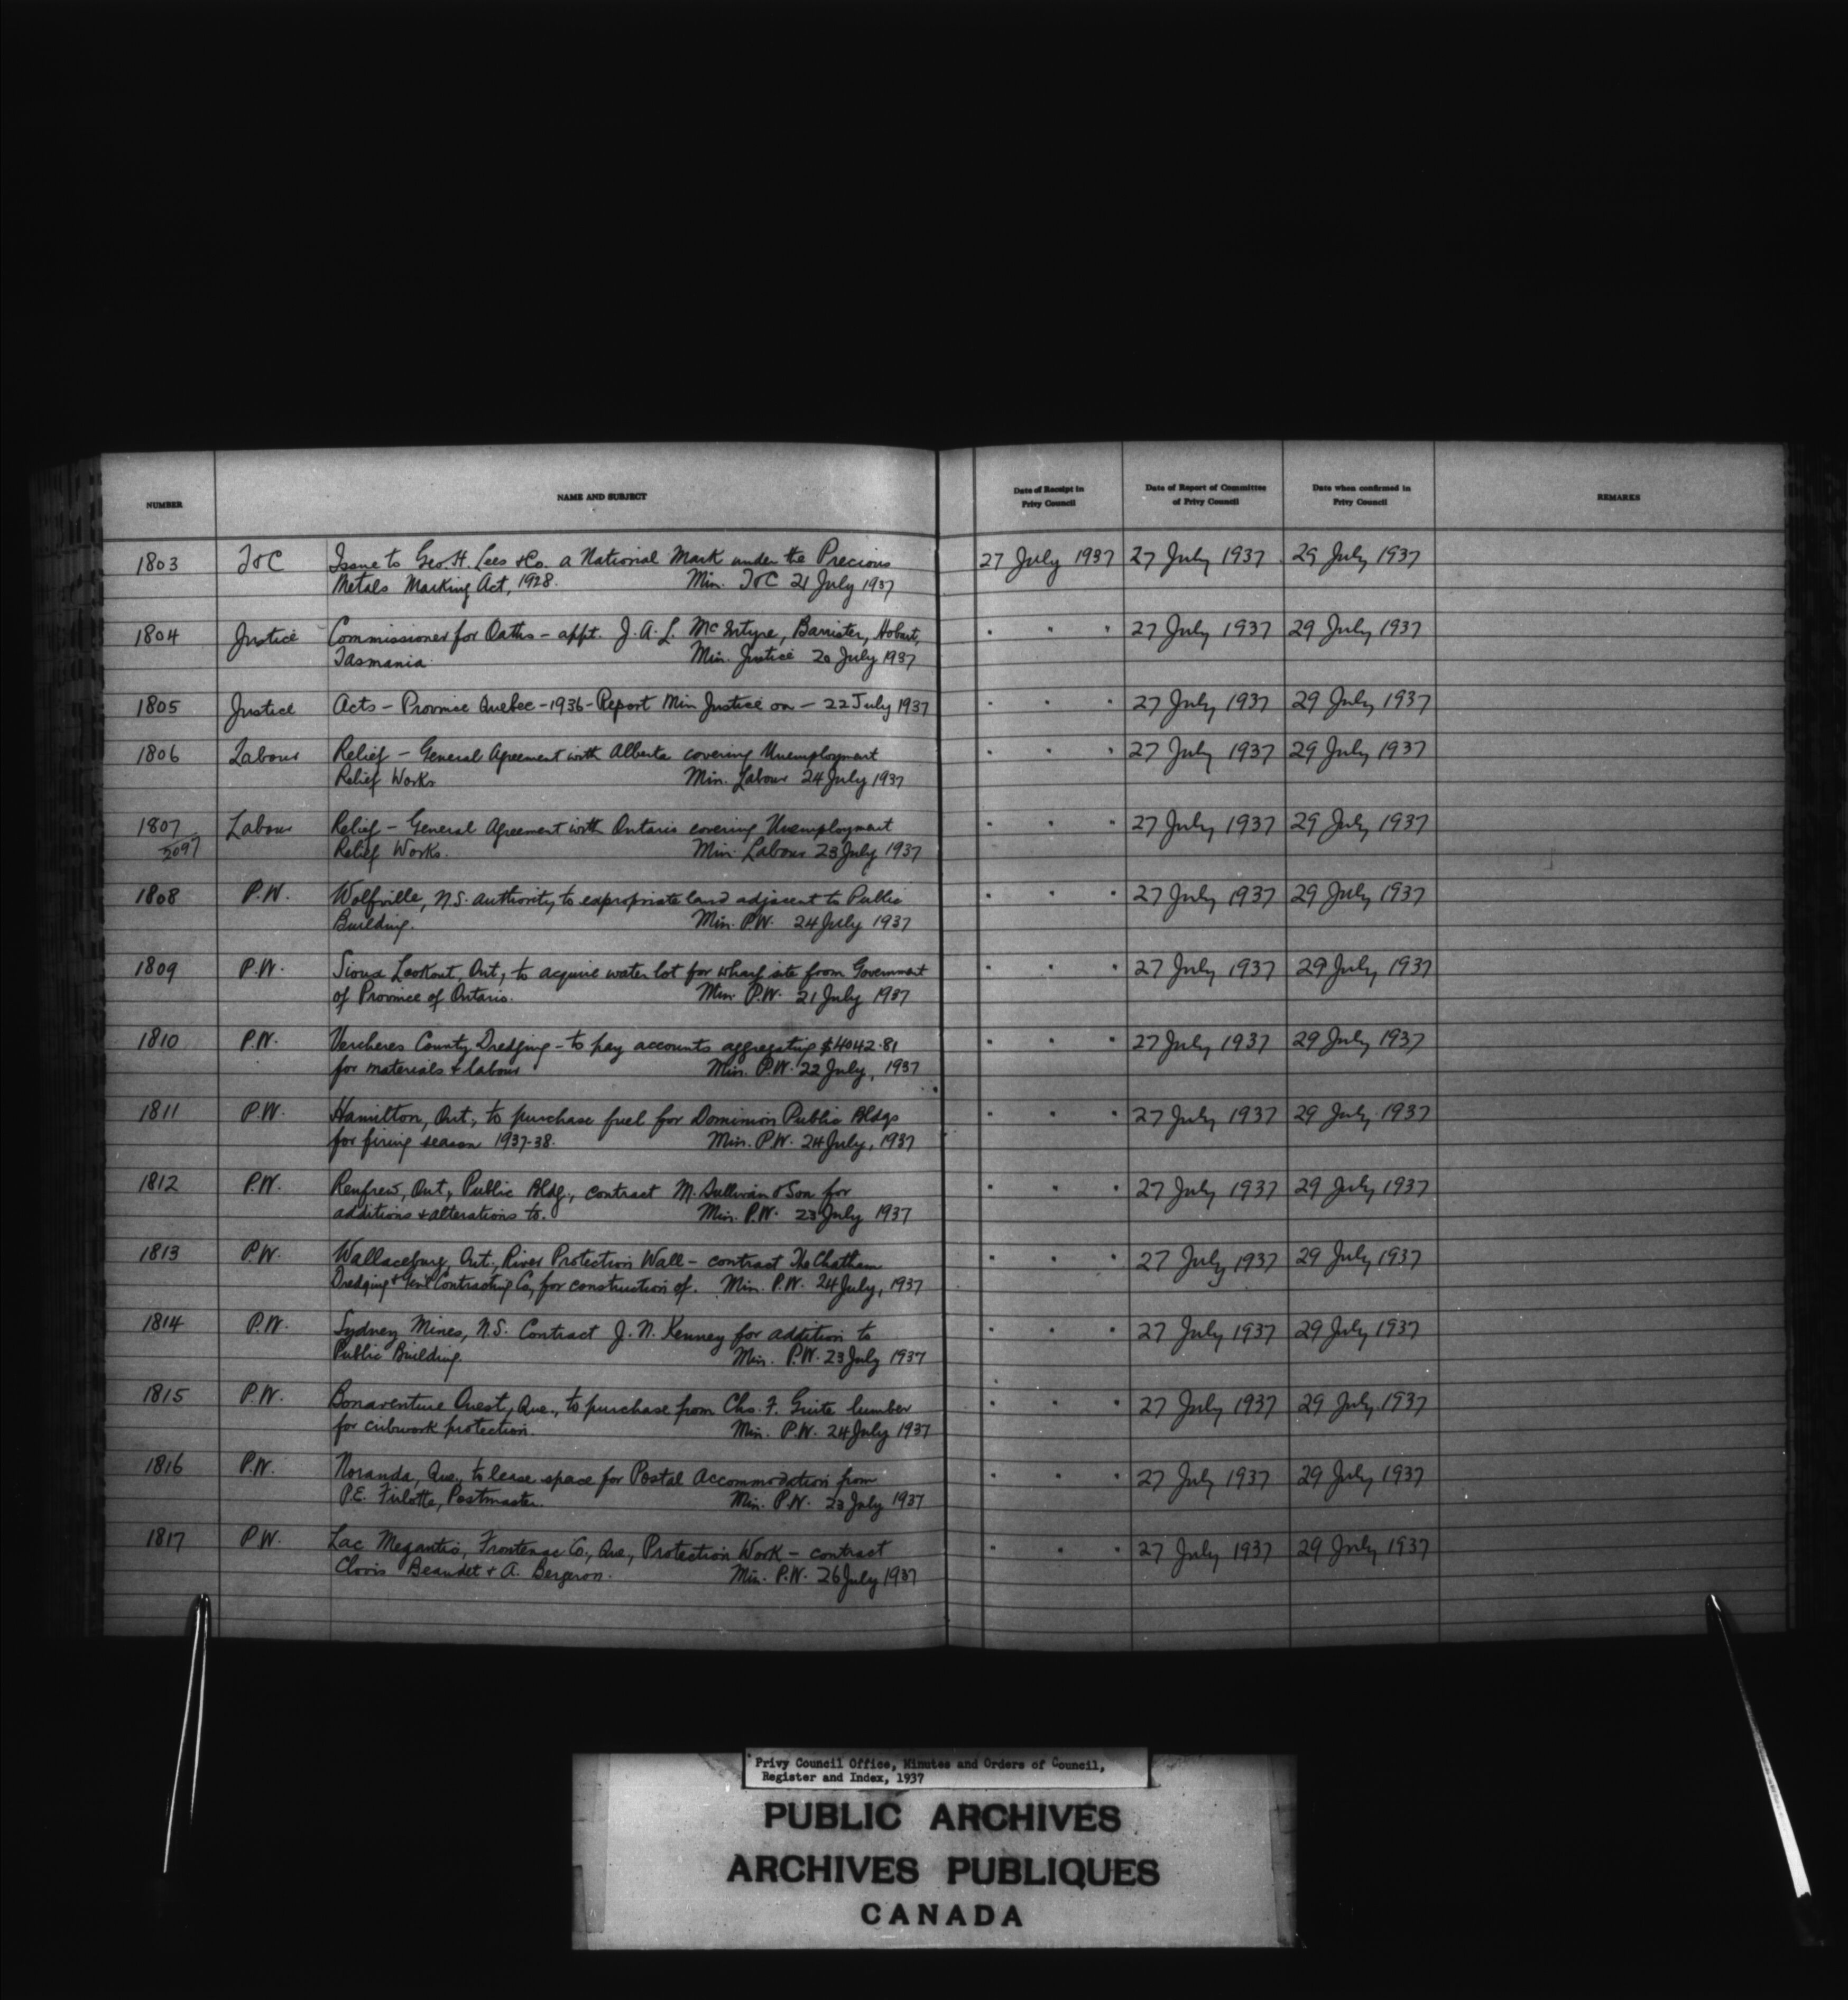 NUMBER
NAME AND SUBJECT
Date of Receipt in Privy Council
Date of Report of Committee of Privy Council
Date when confirmed in Privy Council
REMARKS
1803 T&C Issue to Geo. H. Lees & Co. a National Mark under the Precious 27 July 1937 27 July 1937 29 July 1937
Metals Marking Act, 1928. Min. T&C 21 July 1937
1804 Justice Commissioner for Oaths - appt. J. A. L. McIntyre, Barrister, Hobart, " " " 27 July 1937 29 July 1937
Tasmania Min. Justice 20 July 1937
1805 Justice Acts - Province Quebec - 1936 - Report Min Justice on - 22 July 1937 " " " 27 July 1937 29 July 1937
1806 Labour Relief - General Agreement with Alberta covering Unemployment " " " 27 July 1937 29 July 1937
Relief Works Min. Labour 24 July 1937
1807 Labour Relief - General Agreement with Ontario covering Unemployment " " " 27 July 1937 29 July 1937
5097 Relief Works. Min. Labour 23 July 1937
1808 P.W. Wolfville, N.S. authority to expropriate land adjacent to Public " " " 27 July 1937 29 July 1937
Building. Min. P.W. 24 July 1937
1809 P.W. Sioux Lookout, Ont., to acquire water lot for wharf site from Government " " " 27 July 1937 29 July 1937
of Province of Ontario. Min. P.W. 21 July 1937
1810 P.W. Vercheres County Dredging - to pay accounts aggregating $4042.81 " " " 27 July 1937 29 July 1937
for materials & labour Min. P.W. 22 July, 1937
1811 P.W. Hamilton, Ont., to purchase fuel for Dominion Public Bldgs " " " 27 July 1937 29 July 1937
for firing season 1937-38. Min. P.W. 24 July, 1937
1812 P.W. Renfrew, Ont., Public Bldg., contract M. Sullivan & Son for " " " 27 July 1937 29 July 1937
additions & alterations to. Min. P.W. 23 July 1937
1813 P.W. Wallaceburg, Ont., River Protection Wall - contract The Chatham " " " 27 July 1937 29 July 1937
Dredging & Gen'l Contracting Co, for construction of. Min. P.W. 24 July, 1937
1814 P.W. Sydney Mines, N.S. Contract J. N. Kenney for addition to " " " 27 July 1937 29 July 1937
Public Building. Min. P.W. 23 July 1937
1815 P.W. Bonaventure Ouest, Que., to purchase from Chs. F. Guite lumber " " " 27 July 1937 29 July 1937
for cribwork protection. Min. P.W. 24 July 1937
1816 P.W. Noranda, Que., to lease space for Postal Accommodation from " " " 27 July 1937 29 July 1937
P.E. Firlotte, Postmaster. Min. P.W. 23 July 1937
1817 P.W. Lac Megantic, Frontenac Co., Que, Protection Work - contract " " " 27 July 1937 29 July 1937
Clovis Beaudet & A. Bergeron. Min. P.W. 26 July 1937
Privy Council Office, Minutes and Orders of Council,
Register and Index, 1937
PUBLIC ARCHIVES
ARCHIVES PUBLIQUES
CANADA